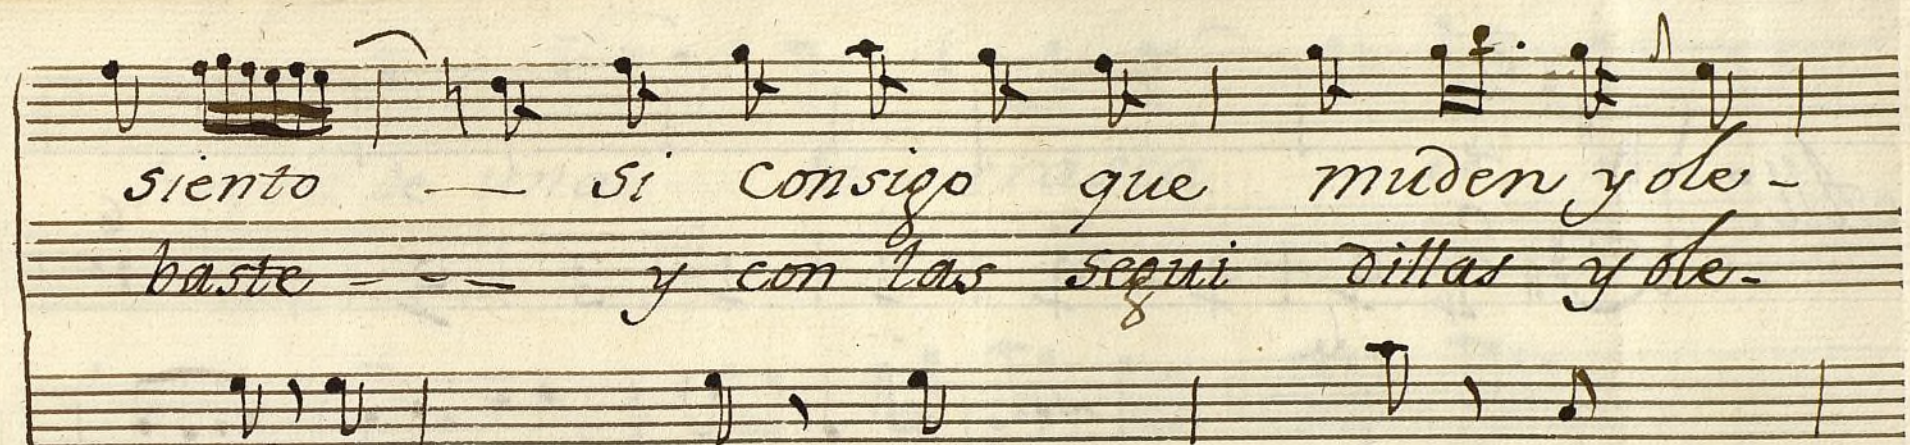 siento — si consigo que muden y ole -
baste - - - y con las segui dillas y ole -